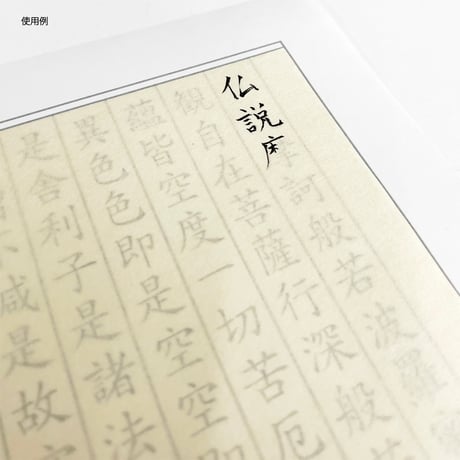 使用例
仏説摩訶般若波羅蜜
観自在菩薩行深般
蘊皆空度一切苦厄
異色色即是空空即
是舎利子是諸法
不減是故空